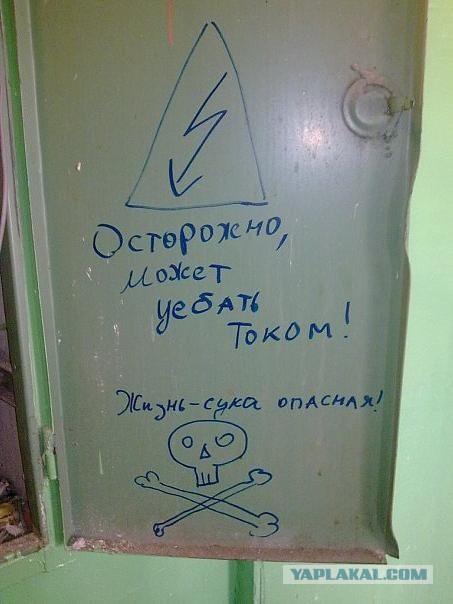 Осторожно,
может
уебать
током!
Жизнь-сука опасная!
YAPLAKAL.COM